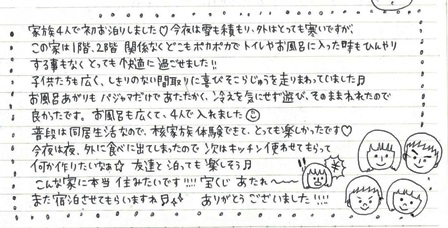 家族4人で初お泊りしました♡今夜は雪も積もり、外はとっても寒いですが、
この家は1階、2階 関係なくどこもポカポカで トイレやお風呂に入った時もひんやり
する事もなく とっても 快適に過ごせました!!
子供たちも広く、しきりのない間取りに喜びそこらじゅうを走りまわっていました♪
お風呂あがりも パジャマだけで あたたかく、冷えを気にせず遊び、そのままねれたので
良かったです。お風呂も広くて、4人で入れました☺
普段は同居生活なので、核家族体験できて、とっても楽しかったです♡
今夜は夜、外に食べに出てしまったので 次はキッチン使わせてもらって
何か作りたいなぁ☆ 友達と泊っても楽しそう♪
こんな家に本当 住みたいです!!!! 宝くじ あたれ〜〜
また宿泊させてもらいますね♪ ありがとうございました!!!!